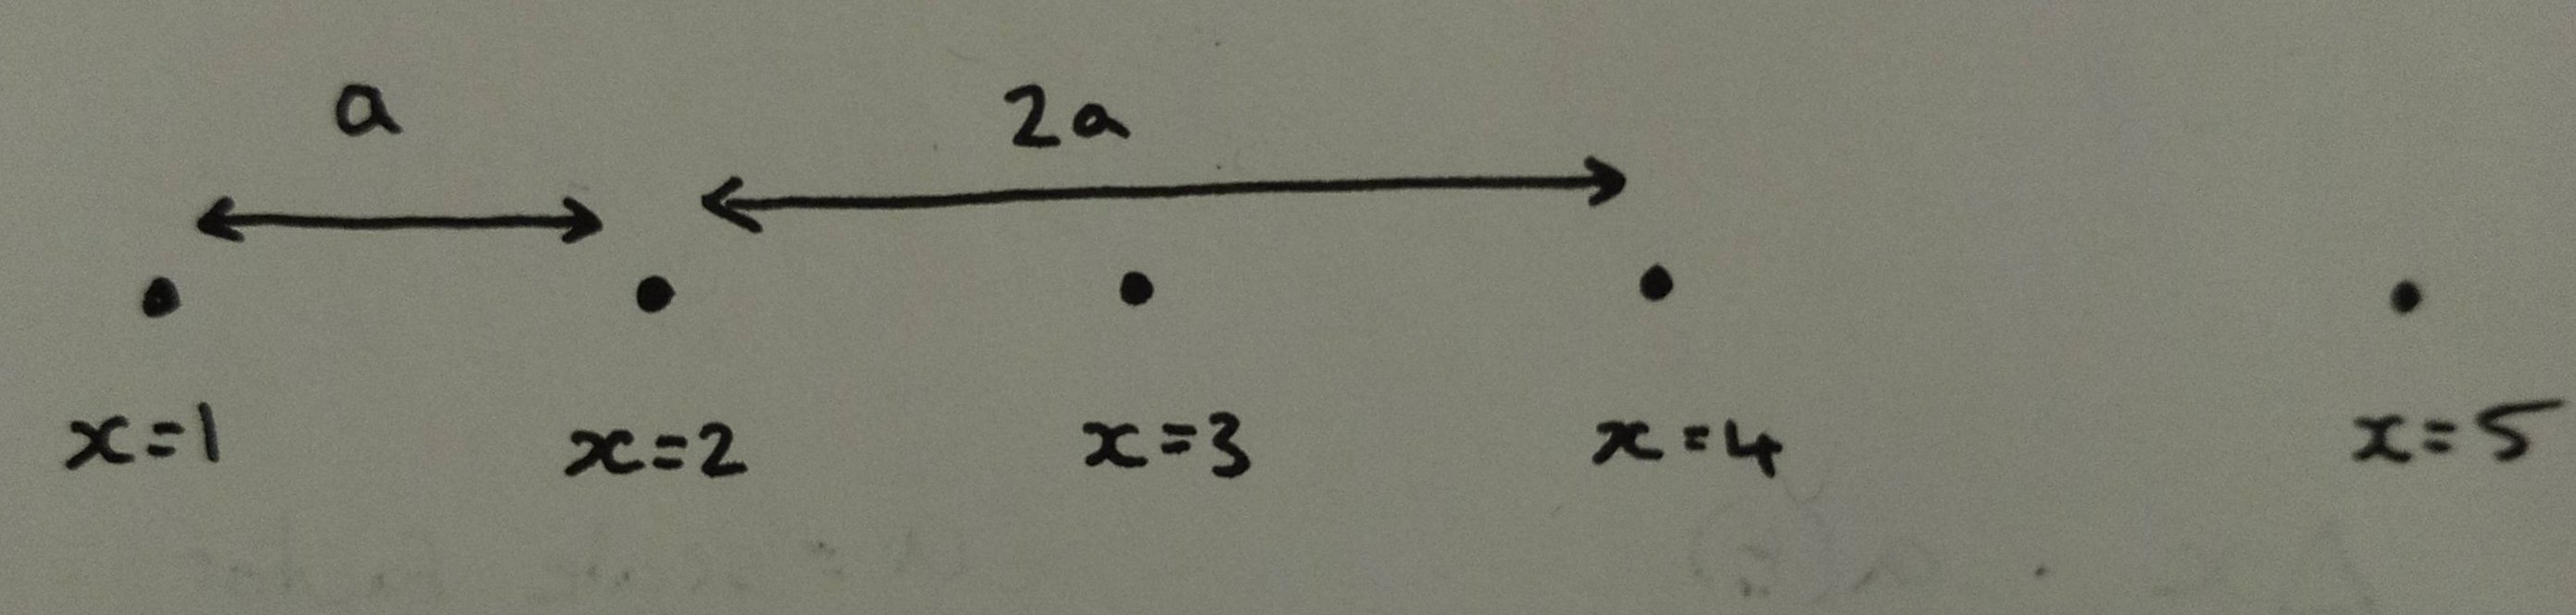 a 2a
x=1 x=2 x=3 x=4 x=5